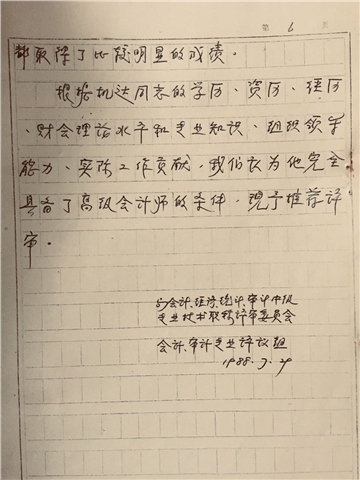 第 6 页
都取得了比较明显的成绩。
根据机达同志的学历、资历、经历
、财会理论水平和专业知识、组织领导
能力、实际工作贡献，我们认为他完全
具备了高级会计师的条件，现予推荐评
审。
会计、经济、统计、审计中级
专业技术职称评审委员会
会计、审计专业评议组
1988.7.29